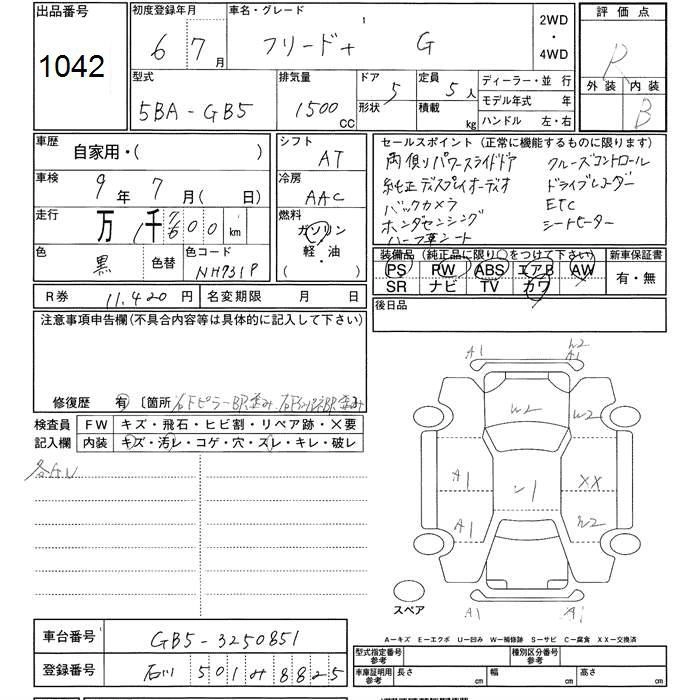 出品番号
1042
初度登録年月
6 7 月
車名・グレード
フリード+ G
2WD
・
4WD
評価点
R
外装 内装
B
型式
5BA-GB5
排気量
1500 CC
ドア 5
形状
定員 5 人
積載 kg
ディーラー・並行
モデル年式 年
ハンドル 左・右
車歴
自家用・( )
車検
9 年 7 月( 日)
走行
万 1千 7600 km
色
黒
色替
色コード
NH731P
シフト
AT
冷房
AAC
燃料
ガソリン
軽・油
( )
セールスポイント(正常に機能するものに限ります)
両側パワースライドドア クルーズコントロール
純正ディスプレイオーディオ ドライブレコーダー
バックカメラ ETC
ホンダセンシング シートヒーター
ハーフ革シート
装備品(純正品に限り○をつけて下さい)
PS PW ABS エアB AW
SR ナビ TV カワ
新車保証書
有・無
後日品
R券 11,420 円
名変期限 月 日
注意事項申告欄(不具合内容等は具体的に記入して下さい)
修復歴 有 〔箇所
検査員
記入欄
FW キズ・飛石・ヒビ割・リペア跡・×要
内装 キズ・汚レ・コゲ・穴・スレ・キレ・破レ
A1 W2
A1
W2
A1 XX
A1 W2
A1 A1
スペア
A-キズ E-エクボ U-凹み W-補修跡 S-サビ C-腐食 XX-交換済
車台番号
GB5-3250851
登録番号
石川 501 み 8825
型式指定番号
参考
種別区分番号
参考
車庫証明用
参考
長さ cm 幅 cm 高さ cm